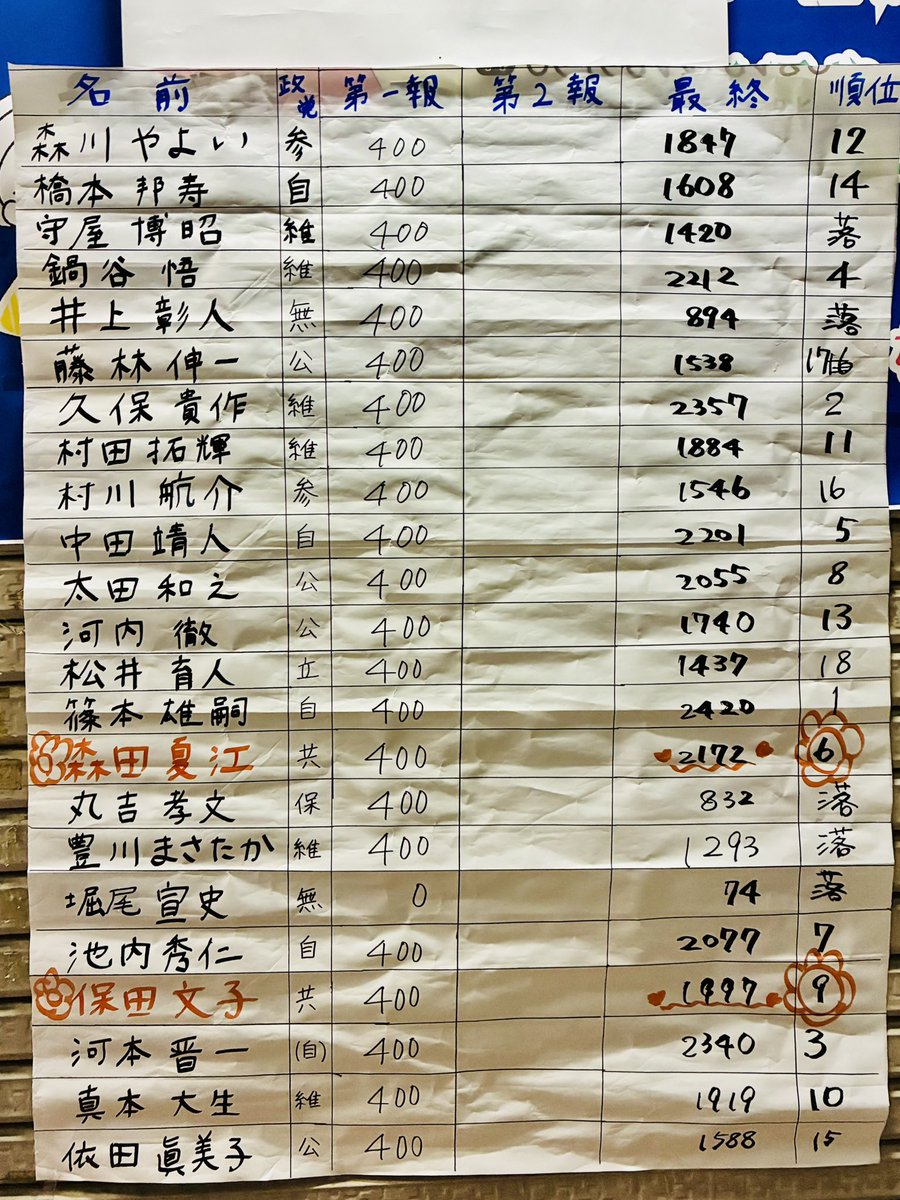 名前 政党 第一報 第2報 最終 順位
森川 やよい 参 400 1847 12
橋本 邦寿 自 400 1608 14
守屋 博昭 維 400 1420 落
鍋谷 悟 維 400 2212 4
井上 彰人 無 400 894 落
藤林 伸一 公 400 1538 17
久保 貴作 維 400 2357 2
村田 拓輝 維 400 1884 11
村川 航介 参 400 1546 16
中田 靖人 自 400 2201 5
太田 和之 公 400 2055 8
河内 徹 公 400 1740 13
松井 育人 立 400 1437 18
篠本 雄嗣 自 400 2420 1
森田 夏江 共 400 2172 6
丸吉 孝文 保 400 832 落
豊川 まさたか 維 400 1293 落
堀尾 宣史 無 0 74 落
池内 秀仁 自 400 2077 7
保田 文子 共 400 1997 9
河本 晋一 (自) 400 2340 3
真本 大生 維 400 1919 10
依田 眞美子 公 400 1588 15